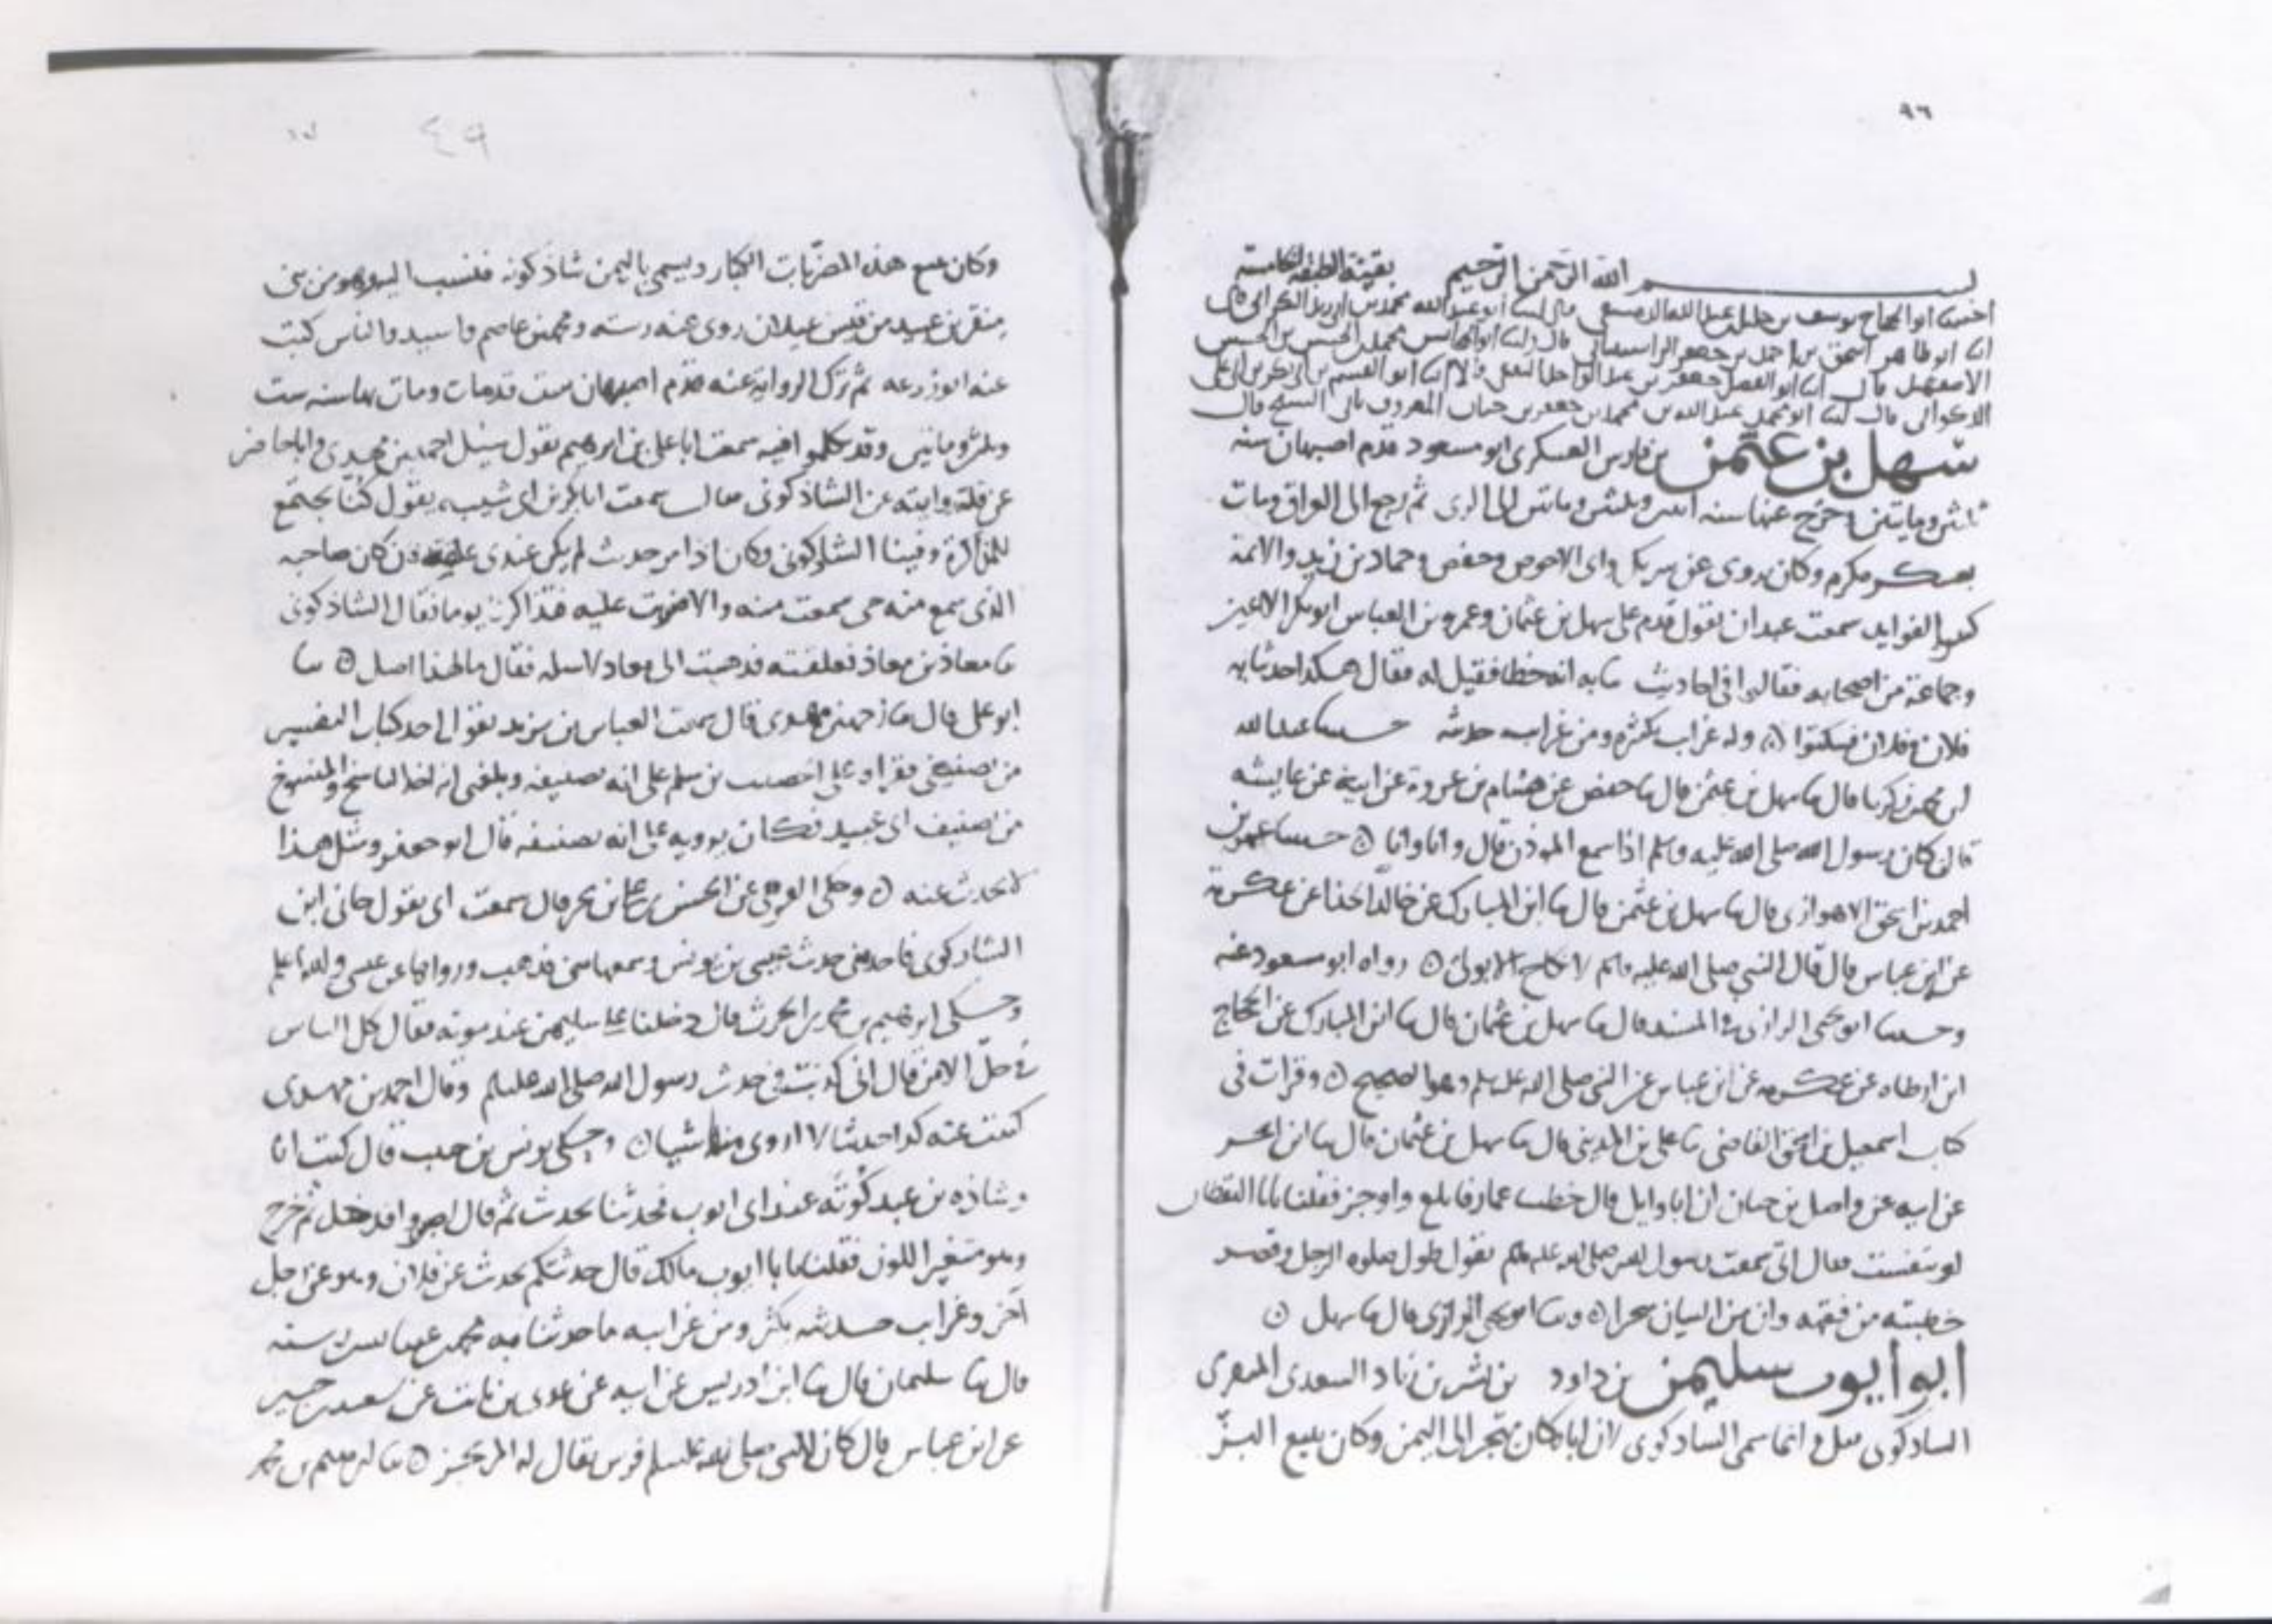 ٩٦
بسم الله الرحمن الرحيم بقية الطبقة الخامسة
ابو الحجاج يوسف بن خليل بن عبد الله الدمشقي قال ابو عبد الله محمد بن ابي زيد الكراني قال
ابو محمد عبد الله بن محمد بن جعفر بن حيان المعروف بابي الشيخ قال
سهل بن عثمن بن فارس العسكري ابو مسعود قدم اصبهان سنه
ثلثين وماتين وخرج عنها سنه وثلثين وماتين الى الري ثم رجع الى العراق ومات
بعسكر مكرم وكان يروي عن شريك وابي الاحوص وحفص وحماد بن زيد والائمة
كثير الفوايد سمعت عبدان يقول قدم على سهل بن عثمان وعمرو بن العباس ابو بكر الاعين
وجماعة من اصحابه فقالوا في احاديث حدثنا به انه خطا فقيل له فقال هكذا حدثنا به
فلان وفلان فسكتوا وله غرايب تكثر ومن غرايب حديثه حدثنا عبد الله
ابن محمد بن زكريا قال ثنا سهل بن عثمن قال ثنا حفص عن هشام بن عروة عن ابيه عن عايشه
قالت كان رسول الله صلى الله عليه وسلم اذا سمع الموذن قال وانا وانا حدثنا عمر بن
احمد بن اسحق الاهوازي قال ثنا سهل بن عثمن قال ثنا ابن المبارك عن خالد الحذا عن عكرمة
عن ابن عباس قال قال النبي صلى الله عليه وسلم لا نكاح الا بولي رواه ابو مسعود عنه
وحدثنا ابو يحيى الرازي في المسند قال ثنا سهل بن عثمان قال ثنا ابن المبارك عن الحجاج
ابن ارطاه عن عكرمه عن ابن عباس عن النبي صلى الله عليه وسلم وهو الصحيح وقرات في
كتاب اسمعيل بن اسحق القاضي ثنا علي بن المديني قال ثنا سهل بن عثمان قال ثنا ابن ابحر
عن ابيه عن واصل بن حيان ان ابا وايل قال خطبنا عمار فابلغ واوجز فقلنا يابا اليقظان
لو تنفست فقال اني سمعت رسول الله صلى الله عليه وسلم يقول طول صلوة الرجل وقصر
خطبته من فقهه وان من البيان سحرا وثنا ابو يحيى الرازي قال ثنا سهل
ابو ايوب سليمن بن داود بن بشر بن زياد السعدي المنقري
الشاذكوني وانما سمي الشاذكوني لان اباه كان يتجر الى اليمن وكان يبيع البز
٤٩
وكان يبيع هذه المضربات الكبار ويسمى باليمن شاذكونه فنسب اليه وهو من بني
منقر بن عبيد من قيس عيلان روى عنه رسته ومحمد بن عاصم واسيد والناس كتب
عنه ابو زرعه ثم ترك الرواية عنه قدم اصبهان ست قدمات ومات بها سنه ست
وثلثين وماتين وقد تكلموا فيه سمعت ابا علي بن ابرهيم يقول سئل احمد بن مهدي وانا حاضر
عن قلة روايته عن الشاذكوني فقال سمعت ابا بكر بن ابي شيبه يقول كنا نجتمع
للمذاكرة وفينا الشاذكوني وكان اذا مر حديث لم يكن عندي علقته فان كان صاحبه
الذي سمع منه حي سمعت منه والا ضربت عليه فذاكرنا يوما فقال الشاذكوني
ثنا معاذ بن معاذ فعلقته فذهبت الى معاذ لاسله فقال ما لهذا اصل ثنا
ابو علي قال ثنا احمد بن مهدي قال سمعت العباس بن يزيد يقول اخذ كتاب التفسير
من تصنيفي فقراه على الخصيب بن سلم على انه تصنيفه وبلغني انه اخذ الناسخ والمنسوخ
من تصنيف ابي عبيد فكان يرويه على انه تصنيفه قال ابو جعفر ومثل هذا
لا يحدث عنه وحكى عن الحسن بن علي بن بحر قال سمعت ابي يقول جاني ابن
الشاذكوني فاخذ مني حديث عيسى بن يونس وسمعها مني فذهب ورواها عن عيسى والله اعلم
وحكى ابرهيم بن محمد بن الحرث قال دخلنا على سليمن عند موته فقال كل الناس
في حل الا من قال اني كذبت في حديث رسول الله صلى الله عليه وسلم وقال احمد بن مهدي
كتبت عنه كذا حديثا لا اروي منها شيا وحكى يونس بن حبيب قال كنت انا
وشاذه بن عبد كويه عند ابي ايوب فحدثنا بحديث ثم قال اصبروا فدخل ثم خرج
وهو متغير اللون فقلنا يا با ايوب مالك قال حدثتكم بحديث عن فلان وهو عن رجل
اخر وغرايب حديثه تكثر ومن غرايبه ما حدثنا به محمد
قال ثنا سليمان قال ثنا ابن ادريس عن ابيه عن عدي بن ثابت عن سعيد بن جبير
عن ابن عباس قال كان للنبي صلى الله عليه وسلم فرس يقال له المرتجز ثنا ابرهيم بن محمد